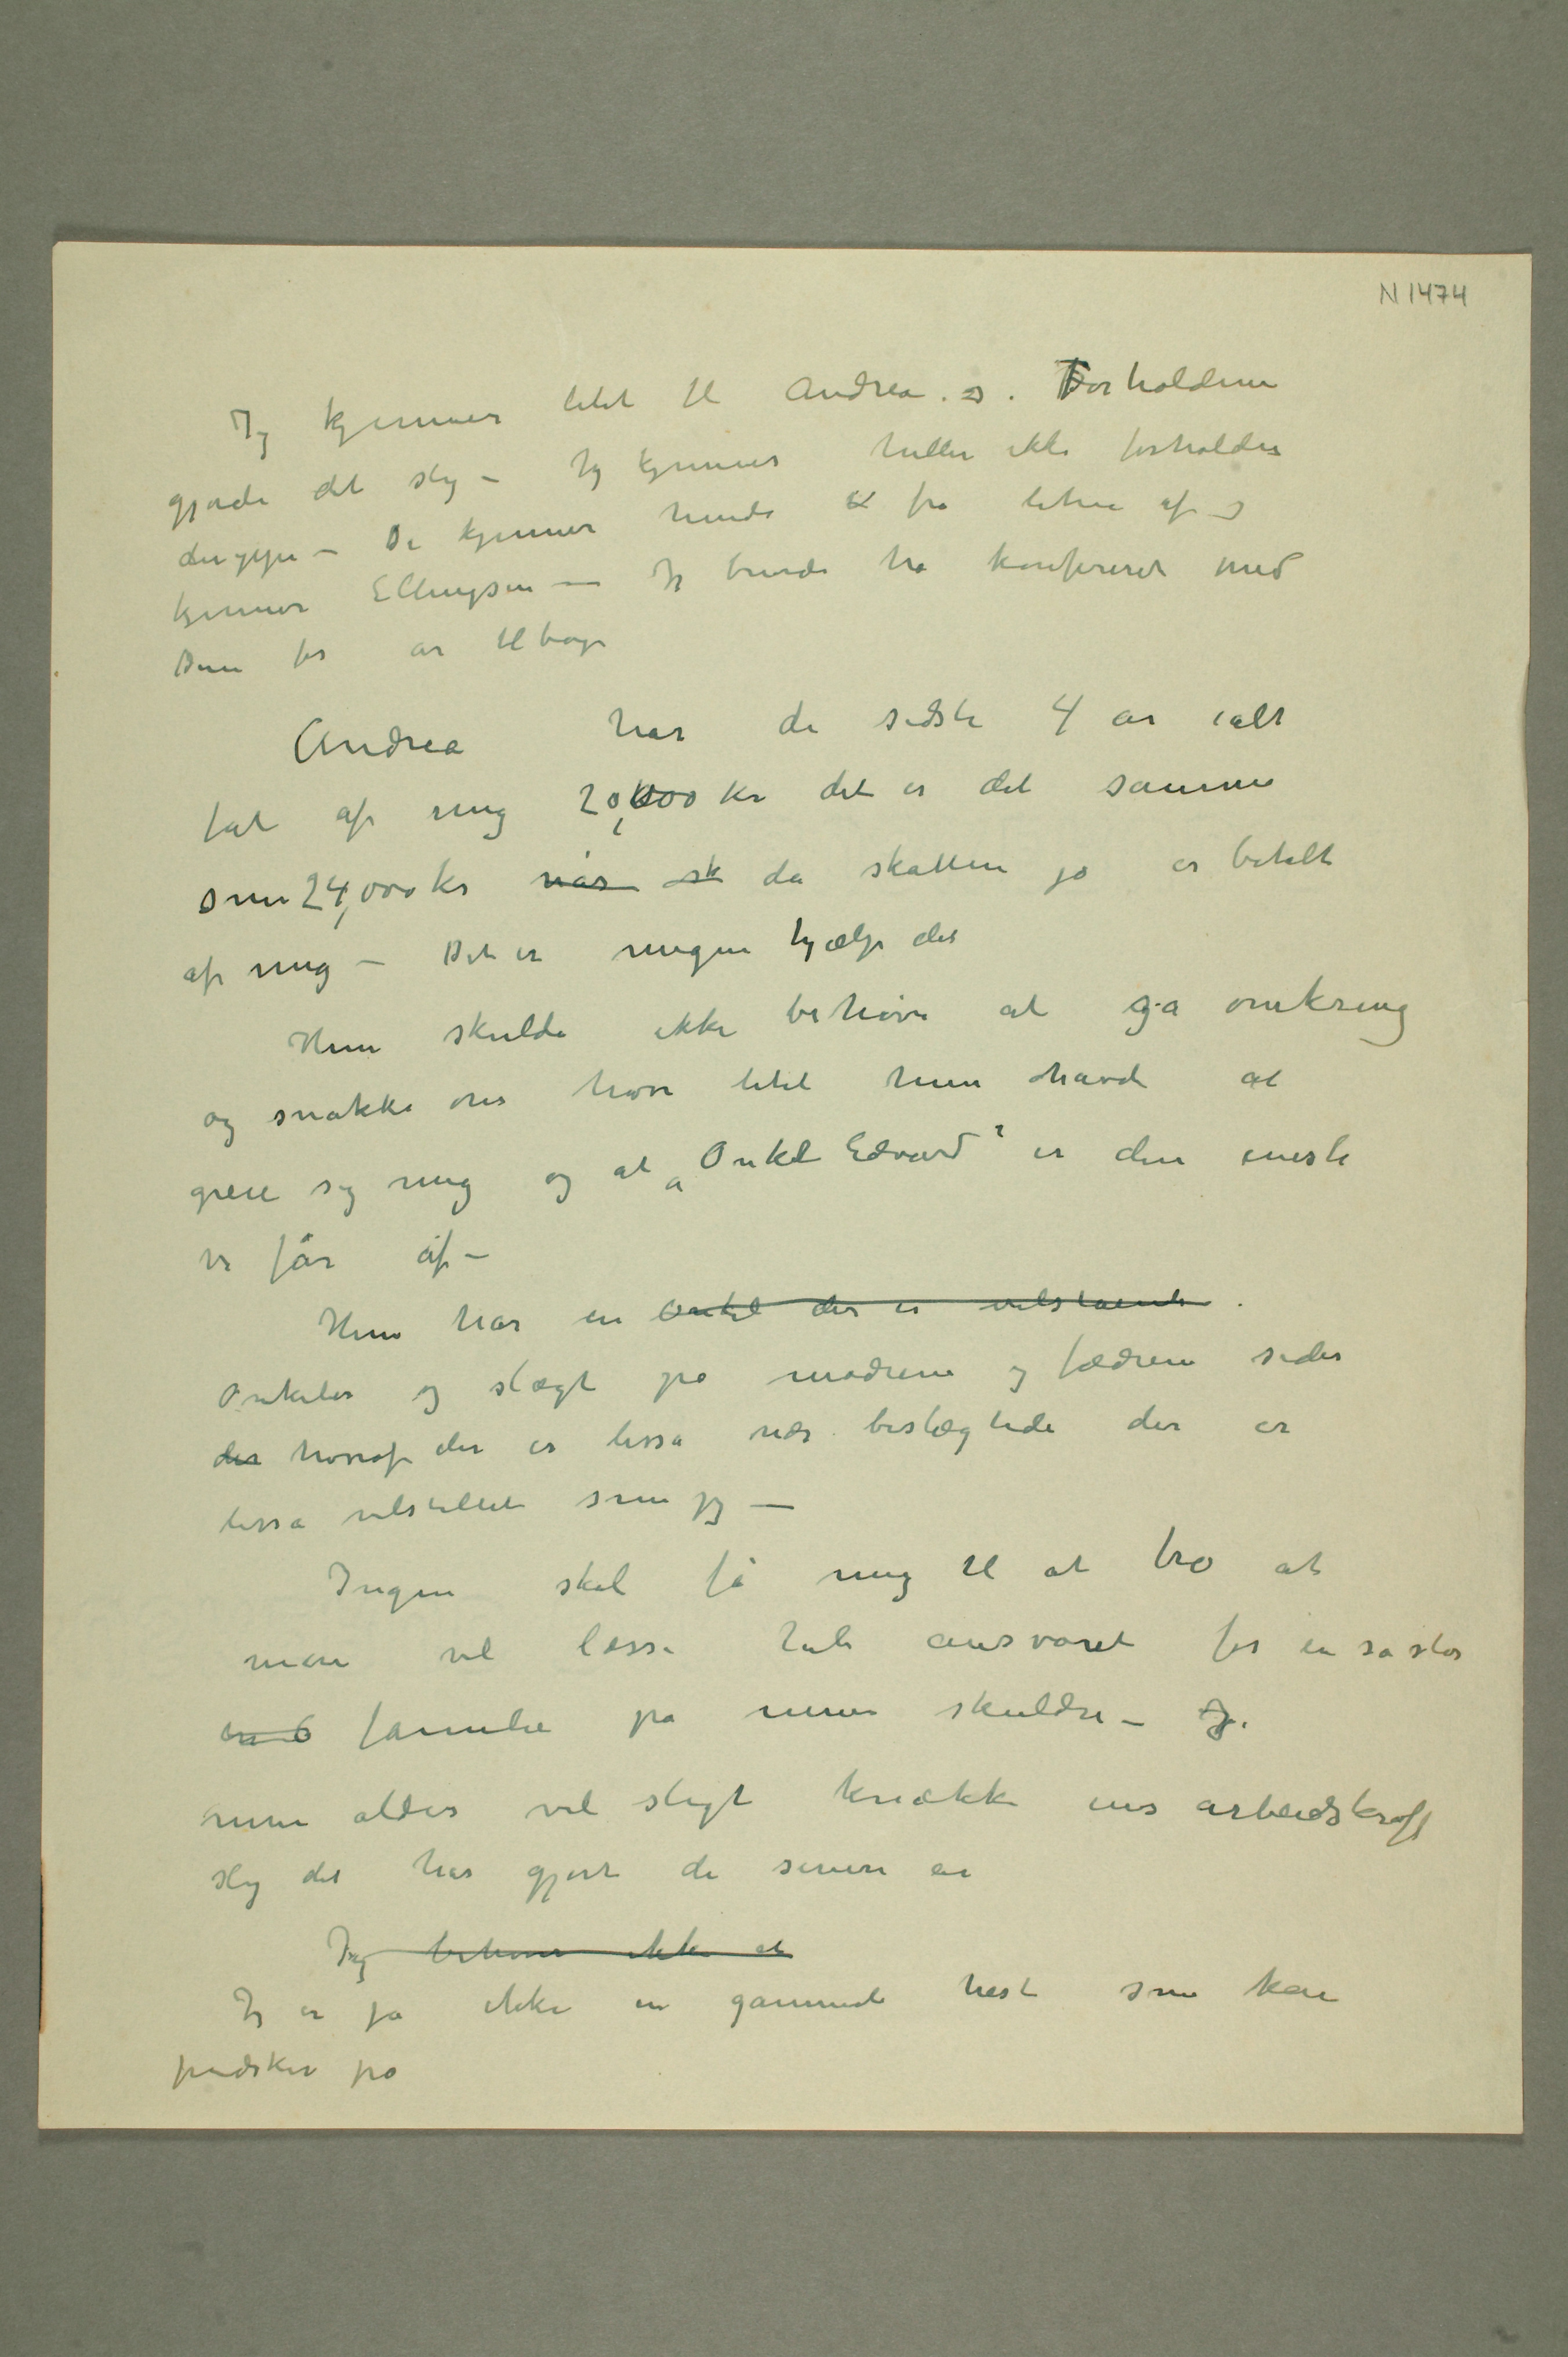 N 1474
Jeg kjenner litet til Andrea. Forholdene
gjorde det slig – Jeg kjenner heller ikke forholdene
deroppe – De kjenner hende fra liten af og
kjenner Ellingsen – Jeg burde ha konfereret med
Dem for år tilbage
Andrea har de sidste 4 år ialt
fåt af mig 20,000 kr det er det samme
som 24,000 kr når sk da skatten jo er betalt
af mig – Det er megen hjælp det
Hun skulde ikke behøve at gå omkring
og snakke om hvor litet hun havde at
greie sig med og at „Onkel Edvard" er den eneste
vi får af –
Hun har en Onkel der er velstående.
Onkeler og slægt på mødrene og fædrene sider
der hvoraf der er lisså nær beslægtede der er
lisså velstillet som jeg –
Ingen skal få mig til at tro at
man vil læsse hele ansvaret for en så stor
familie på mine skuldre – I
min alder vil sligt knække ens arbeidskraft
slig det har gjort de senere år
Jeg behøver ikke at
Jeg er jo ikke en gammel hest som kan
pidskes på